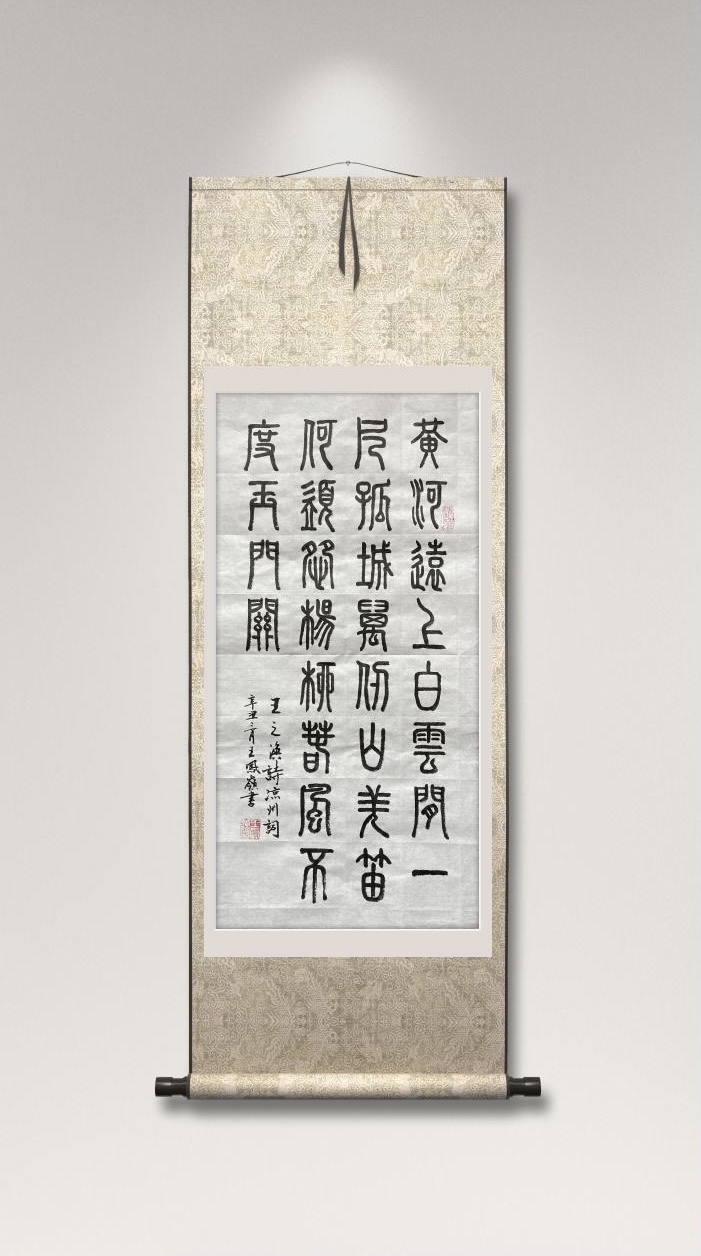 黃河遠上白雲閒一
片孤城萬仞山羌笛
何須怨楊柳春風不
度玉門關
王之渙詩凉州詞
辛丑二月王鳳嶺書